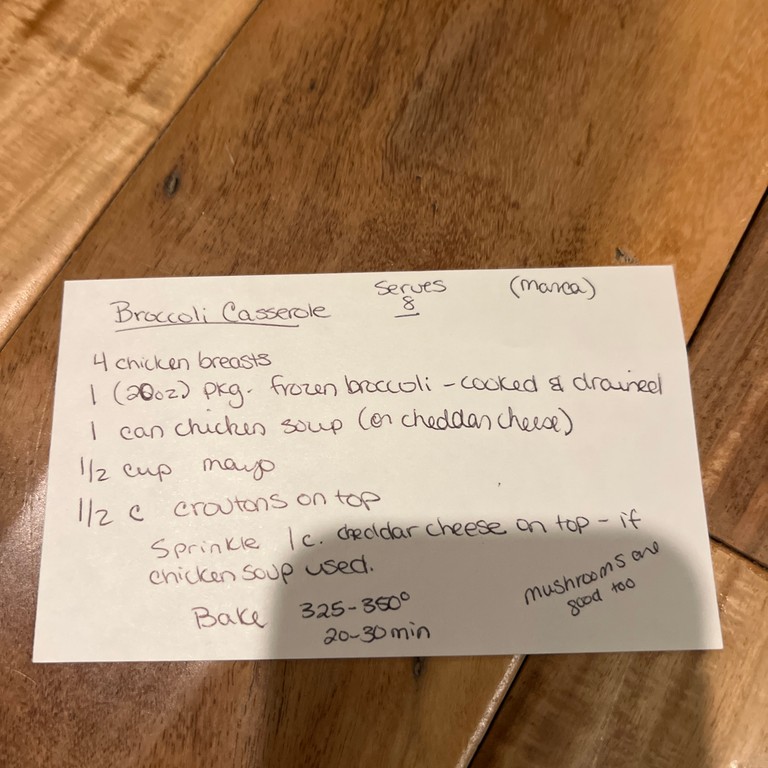 Broccoli Casserole Serves 8 (Marca)
4 chicken breasts
1 (20oz) pkg. frozen broccoli - cooked & drained
1 can chicken soup (or cheddar cheese)
1/2 cup mayo
1/2 c croutons on top
Sprinkle 1c. cheddar cheese on top - if
chicken soup used.
Bake 325-350°
20-30 min
mushrooms are
good too